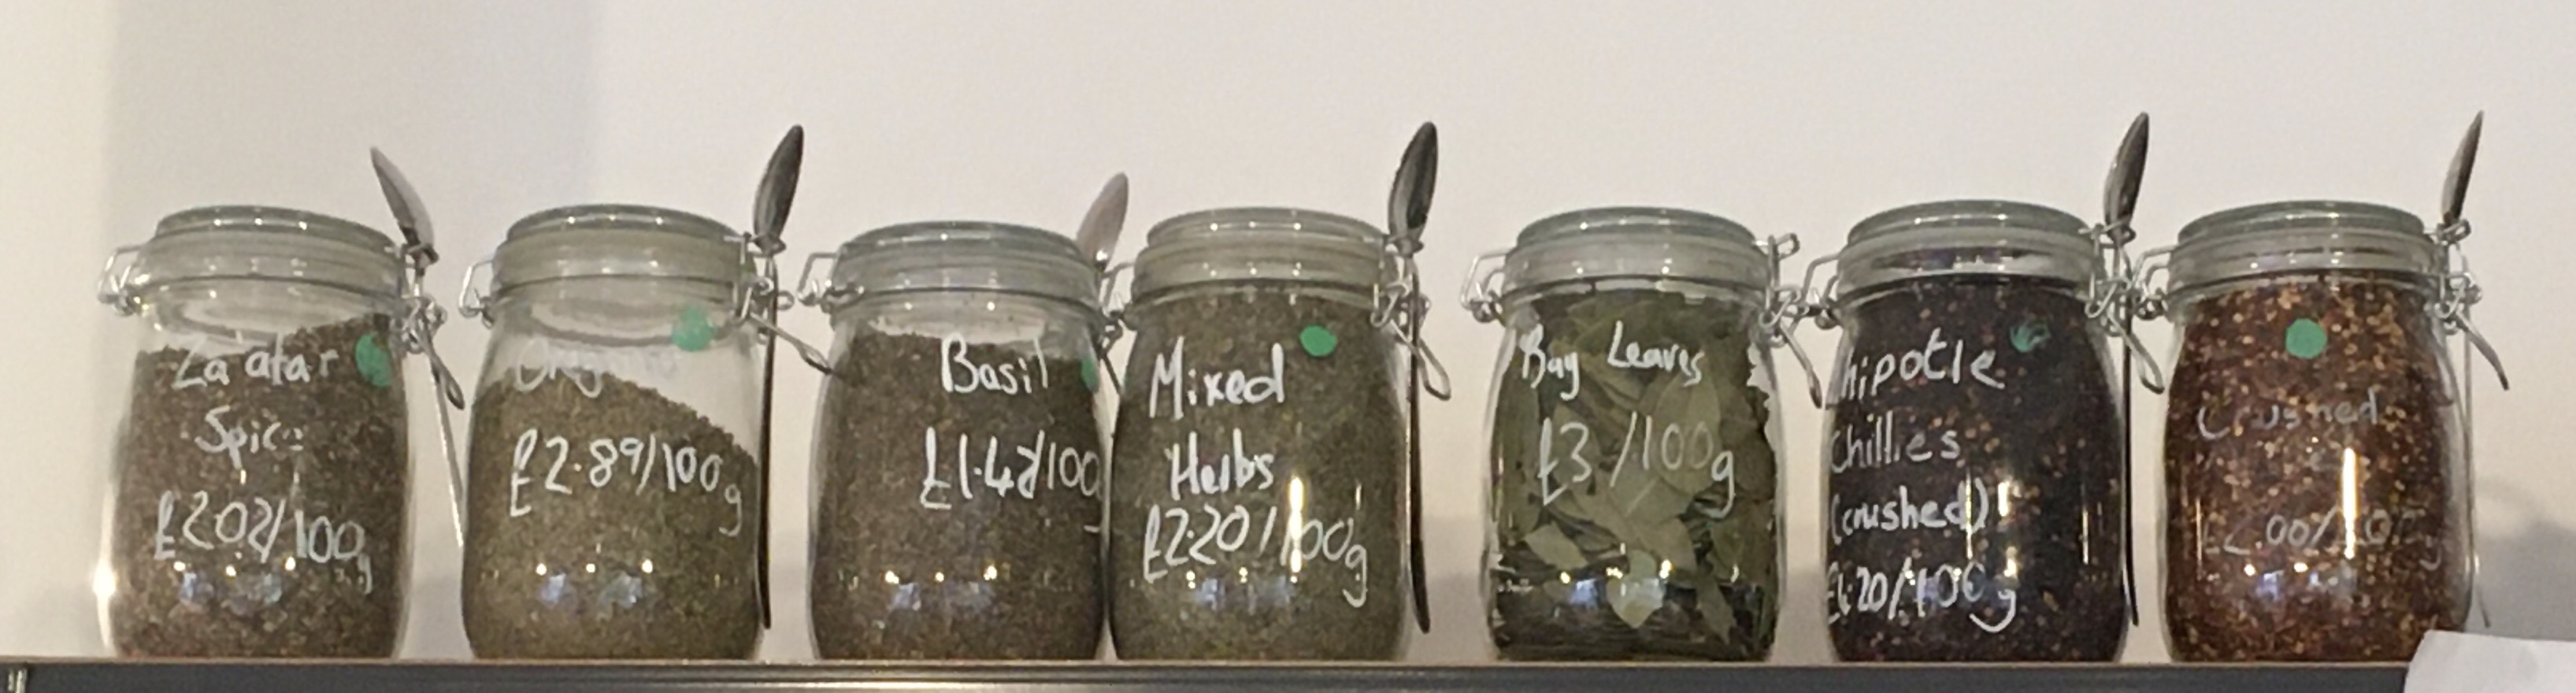 Za'atar
Spice
£2.02/100g
Oregano
£2.89/100g
Basil
Mixed
Herbs
£2.20/100g
Bay Leaves
£3/100g
hipotle
Chillies
(crushed)
Crushed
£2.00/100g